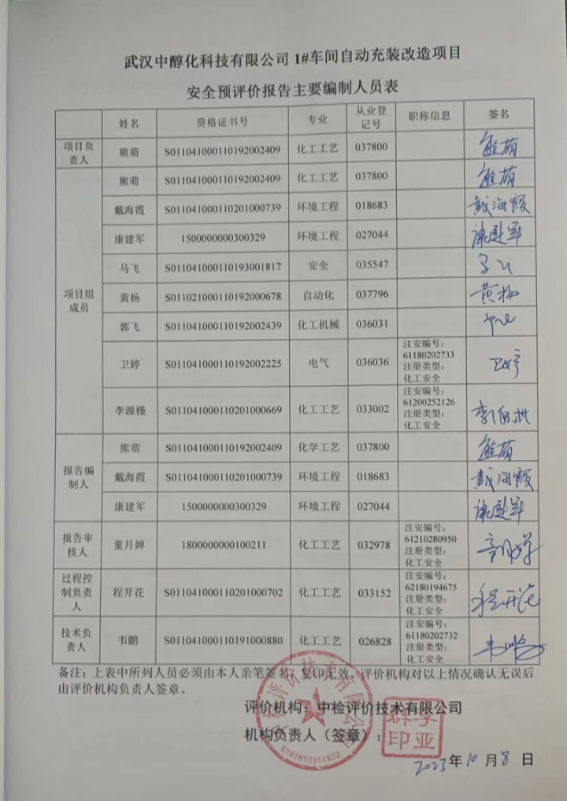 武汉中醇化科技有限公司 1#车间自动充装改造项目
安全预评价报告主要编制人员表
姓名 资格证书号 专业 从业登记号 职称信息 签名
项目负责人 熊萌 S011041000110192002409 化工工艺 037800 熊萌
项目组成员 熊萌 S011041000110192002409 化工工艺 037800 熊萌
戴海霞 S011041000110201000739 环境工程 018683 戴海霞
康建军 1500000000300329 环境工程 027044 康建军
马飞 S011041000110193001817 安全 035547 马飞
黄杨 S011021000110192000678 自动化 037796 黄杨
郭飞 S011041000110192002439 化工机械 036031
卫婷 S011041000110192002225 电气 036036 注安编号：61180202733 注册类型：化工安全 卫婷
李源槿 S011041000110201000669 化工工艺 033002 注安编号：61200252126 注册类型：化工安全
报告编制人 熊萌 S011041000110192002409 化学工艺 037800 熊萌
戴海霞 S011041000110201000739 环境工程 018683 戴海霞
康建军 1500000000300329 环境工程 027044 康建军
报告审核人 童月婵 1800000000100211 化工工艺 032978 注安编号：61210280950 注册类型：化工安全 童月婵
过程控制负责人 程开花 S011041000110201000702 化工工艺 033152 注安编号：62180194675 注册类型：化工安全 程开花
技术负责人 韦鹏 S011041000110191000880 化工工艺 026828 注安编号：61180202732 注册类型：化工安全 韦鹏
备注：上表中所列人员必须由本人亲笔签名，复印无效。评价机构对以上情况确认无误后
由评价机构负责人签章。
评价机构：中检评价技术有限公司
机构负责人（签章）：
2023年10月8日